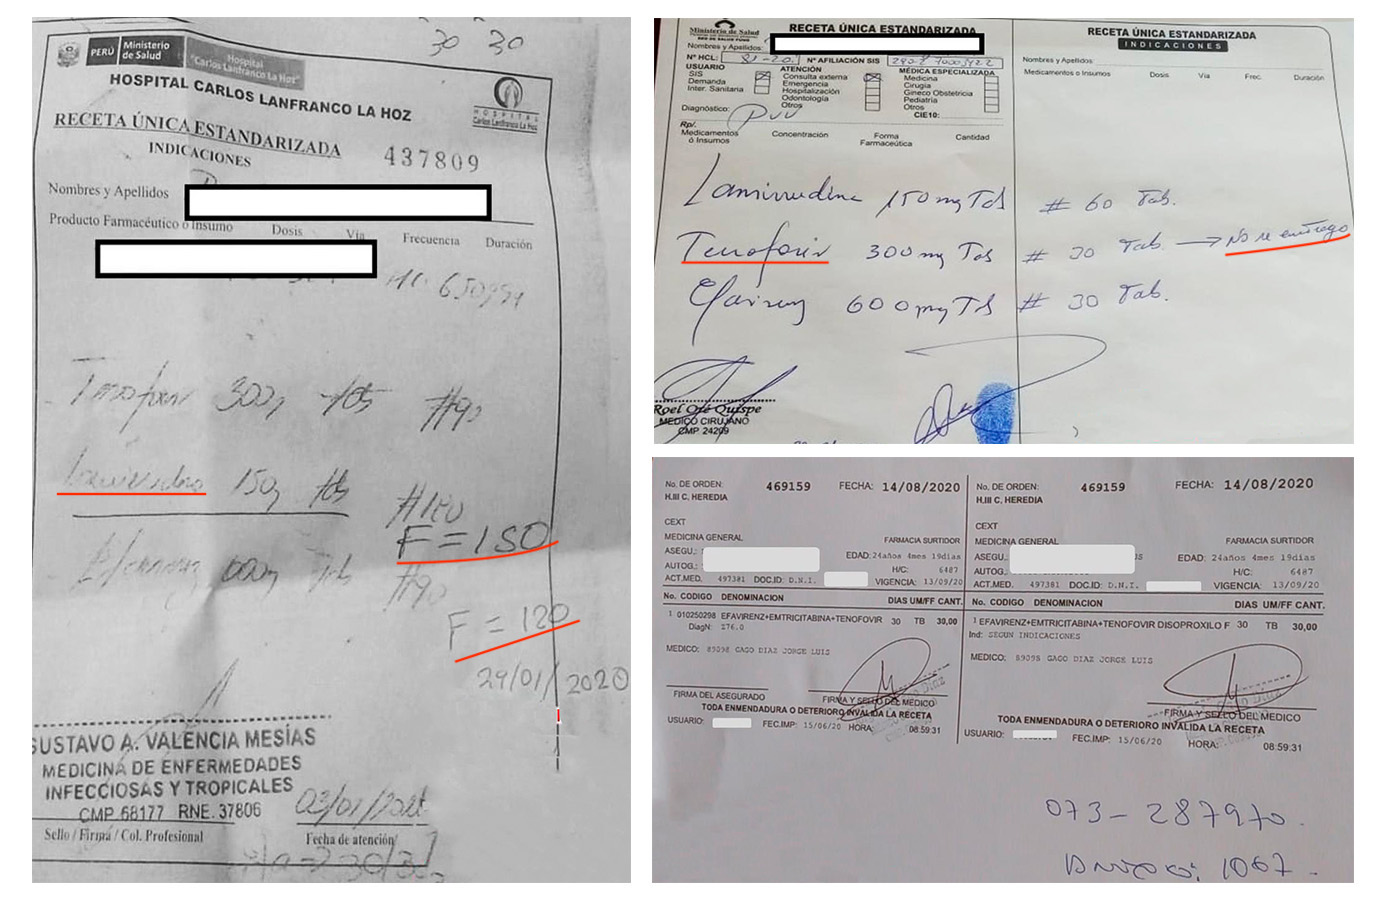 30 30
PERÚ
Ministerio de Salud
Hospital "Carlos Lanfranco La Hoz"
HOSPITAL CARLOS LANFRANCO LA HOZ
HOSPITAL
Carlos Lanfranco La Hoz
RECETA ÚNICA ESTANDARIZADA
INDICACIONES
437809
Nombres y Apellidos
Producto Farmacéutico o Insumo Dosis Vía Frecuencia Duración
Tenofovir 300 #90
150 #180
F=150
#90
F=120
29/01/2020
GUSTAVO A. VALENCIA MESÍAS
MEDICINA DE ENFERMEDADES
INFECCIOSAS Y TROPICALES
CMP 68177 RNE. 37806
Sello / Firma / Col. Profesional
Fecha de atención
Ministerio de Salud
RECETA ÚNICA ESTANDARIZADA
Nombres y Apellidos:
Nº HCL: Nº AFILIACIÓN SIS
USUARIO ATENCIÓN MÉDICA ESPECIALIZADA
SIS Consulta externa Medicina
Demanda Emergencia Cirugía
Inter. Sanitaria Hospitalización Gineco Obstetricia
Odontología Pediatría
Otros Otros
CIE10:
Diagnóstico:
Rp/.
Medicamentos ó Insumos Concentración Forma Farmaceútica Cantidad
RECETA ÚNICA ESTANDARIZADA
INDICACIONES
Nombres y Apellidos:
Medicamentos o Insumos Dosis Vía Frec. Duración
Lamivudina 150mg Tab # 60 Tab.
Tenofovir 300mg Tab # 30 Tab. → No se entregó
Efavirenz 600mg Tab # 30 Tab.
Roel Oré Quispe
MEDICO CIRUJANO
CMP 24209
No. DE ORDEN: 469159 FECHA: 14/08/2020
H.III C. HEREDIA
CEXT
MEDICINA GENERAL FARMACIA SURTIDOR
ASEGU.: EDAD: 24años 4mes 19dias
AUTOG.: H/C: 6487
ACT.MED. 497381 DOC.ID: D.N.I. VIGENCIA: 13/09/20
No. CODIGO DENOMINACION DIAS UM/FF CANT.
1 010250298 EFAVIRENZ+EMTRICITABINA+TENOFOVIR 30 TB 30,00
DiagN: 276.0
MEDICO: 89098 GAGO DIAZ JORGE LUIS
FIRMA DEL ASEGURADO FIRMA Y SELLO DEL MEDICO
TODA ENMENDADURA O DETERIORO INVALIDA LA RECETA
USUARIO: FEC.IMP: 15/06/20 HORA: 08:59:31
No. DE ORDEN: 469159 FECHA: 14/08/2020
H.III C. HEREDIA
CEXT
MEDICINA GENERAL FARMACIA SURTIDOR
ASEGU.: EDAD: 24años 4mes 19dias
AUTOG.: H/C: 6487
ACT.MED. 497381 DOC.ID: D.N.I. VIGENCIA: 13/09/20
No. CODIGO DENOMINACION DIAS UM/FF CANT.
1 EFAVIRENZ+EMTRICITABINA+TENOFOVIR DISOPROXILO F 30 TB 30,00
Ind: SEGUN INDICACIONES
MEDICO: 89098 GAGO DIAZ JORGE LUIS
FIRMA Y SELLO DEL MEDICO
TODA ENMENDADURA O DETERIORO INVALIDA LA RECETA
USUARIO: FEC.IMP: 15/06/20 HORA: 08:59:31
073-287970.
1067